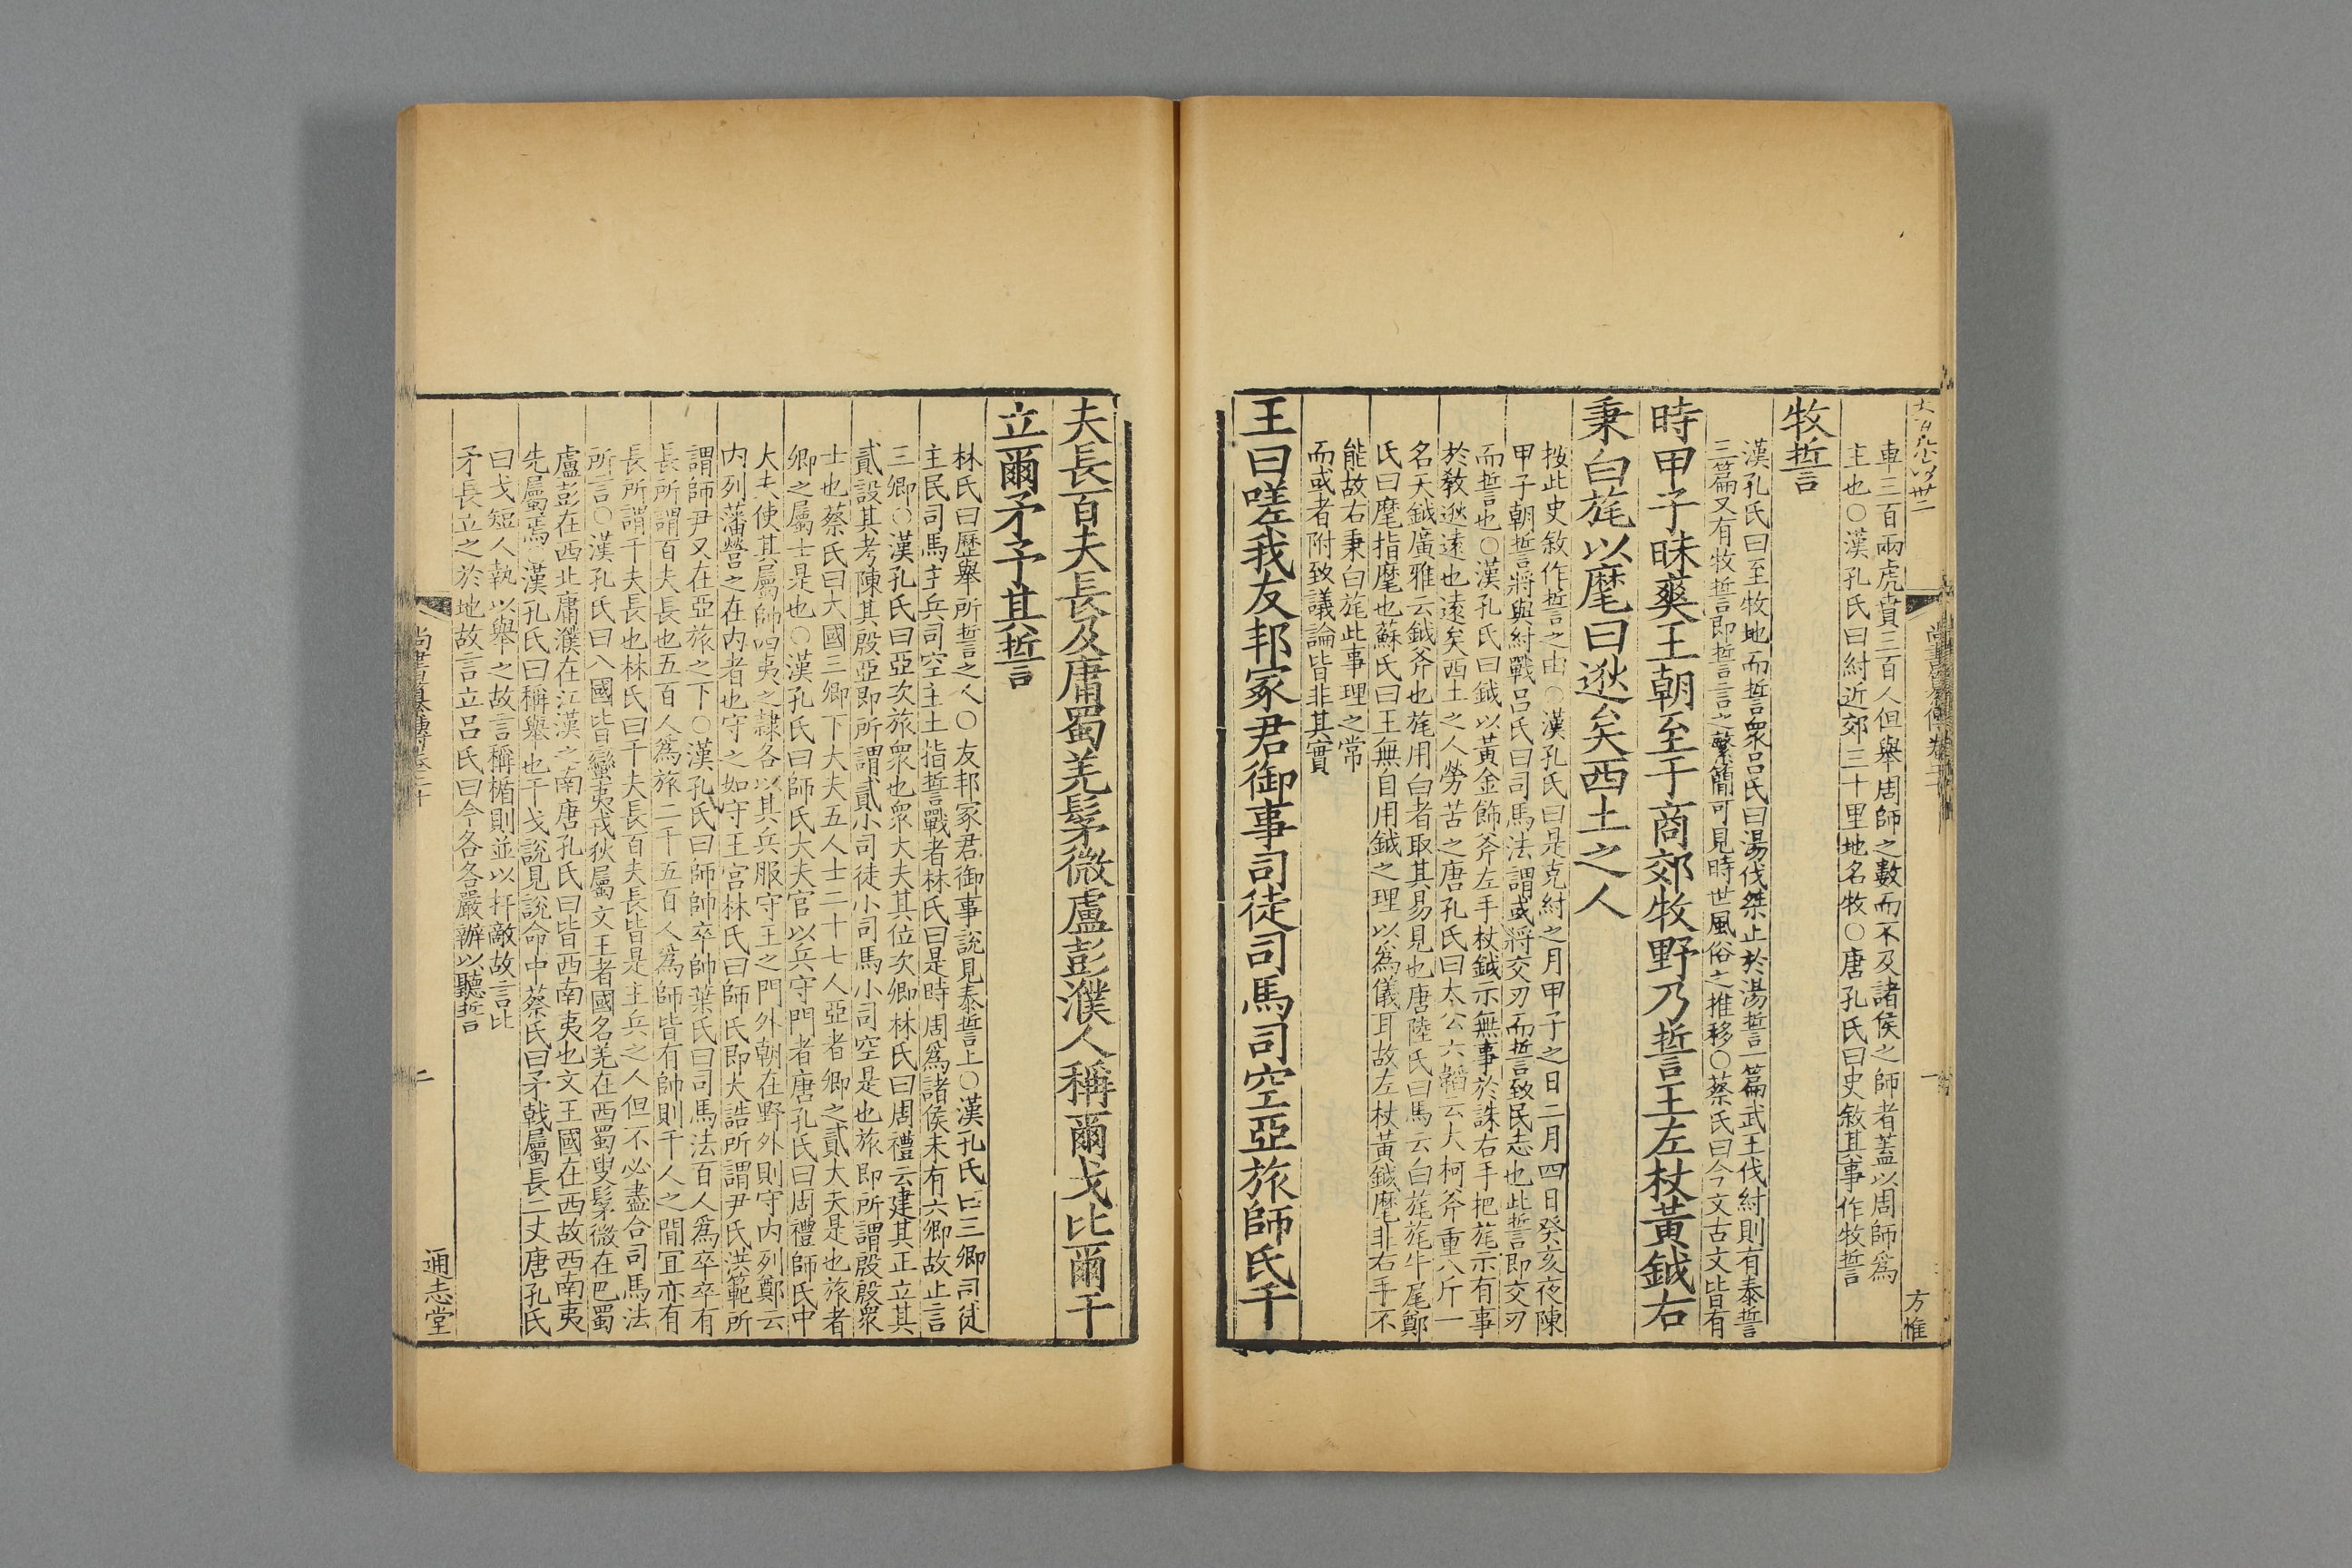 車三百兩虎賁三百人但舉周師之數而不及諸侯之師者蓋以周師為
主也○漢孔氏曰紂近郊三十里地名牧○唐孔氏曰史敘其事作牧誓
牧誓
漢孔氏曰至牧地而誓眾呂氏曰湯伐桀止於湯誓一篇武王伐紂則有泰誓
三篇又有牧誓即誓言之繁簡可見時世風俗之推移○蔡氏曰今文古文皆有
時甲子昧爽王朝至于商郊牧野乃誓王左杖黃鉞右
秉白旄以麾曰逖矣西土之人
按此史敘作誓之由○漢孔氏曰是克紂之月甲子之日二月四日癸亥夜陳
甲子朝誓將與紂戰呂氏曰司馬法謂或將交刃而誓致民志也此誓即交刃
而誓也○漢孔氏曰鉞以黃金飾斧左手杖鉞示無事於誅右手把旄示有事
於教逖遠也遠矣西土之人勞苦之唐孔氏曰太公六韜云大柯斧重八斤一
名天鉞廣雅云鉞斧也旄用白者取其易見也唐陸氏曰馬云白旄旄牛尾鄭
氏曰麾指麾也蘇氏曰王無自用鉞之理以為儀耳故左杖黃鉞麾非右手不
能故右秉白旄此事理之常
而或者附致議論皆非其實
王曰嗟我友邦冢君御事司徒司馬司空亞旅師氏千
方惟
夫長百夫長及庸蜀羌髳微盧彭濮人稱爾戈比爾干
立爾矛予其誓
林氏曰歷舉所誓之人○友邦冢君御事說見泰誓上○漢孔氏曰三卿司徒
主民司馬主兵司空主土指誓戰者林氏曰是時周為諸侯未有六卿故止言
三卿○漢孔氏曰亞次旅眾也眾大夫其位次卿林氏曰周禮云建其正立其
貳設其考陳其殷亞即所謂貳小司徒小司馬小司空是也旅即所謂殷殷眾
士也蔡氏曰大國三卿下大夫五人士二十七人亞者卿之貳大夫是也旅者
卿之屬士是也○漢孔氏曰師氏大夫官以兵守門者唐孔氏曰周禮師氏中
大夫使其屬帥四夷之隸各以其兵服守王之門外朝在野外則守內列鄭云
內列藩營之在內者也守之如守王宮林氏曰師氏即大誥所謂尹氏洪範所
謂師尹又在亞旅之下○漢孔氏曰師帥卒帥葉氏曰司馬法百人為卒卒有
長所謂百夫長也五百人為旅二千五百人為師皆有帥則千人之間宜亦有
長所謂千夫長也林氏曰千夫長百夫長皆是主兵之人但不必盡合司馬法
所言○漢孔氏曰八國皆蠻夷戎狄屬文王者國名羌在西蜀叟髳微在巴蜀
盧彭在西北庸濮在江漢之南唐孔氏曰皆西南夷也文王國在西故西南夷
先屬焉○漢孔氏曰稱舉也干戈說見說命中蔡氏曰矛戟屬長二丈唐孔氏
曰戈短人執以舉之故言稱楯則並以扞敵故言比
矛長立之於地故言立呂氏曰今各各嚴辦以聽誓
二
通志堂